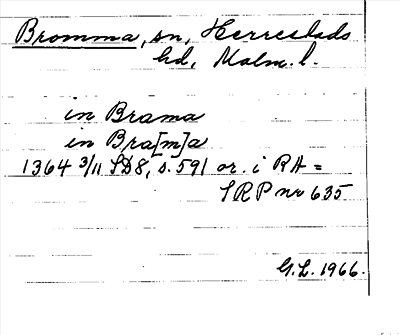 Bromma, sn, Herrestads
hd, Malm. l.
in Brama
in Bra[m]a
1364 3/11 SD8, s. 591 or. i RA =
SRP nr 635
G.L. 1966.